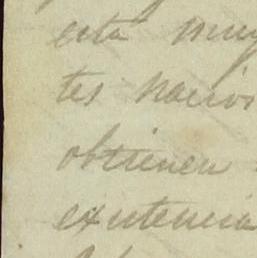 esta muy
tes nacio
obtienen
existencia